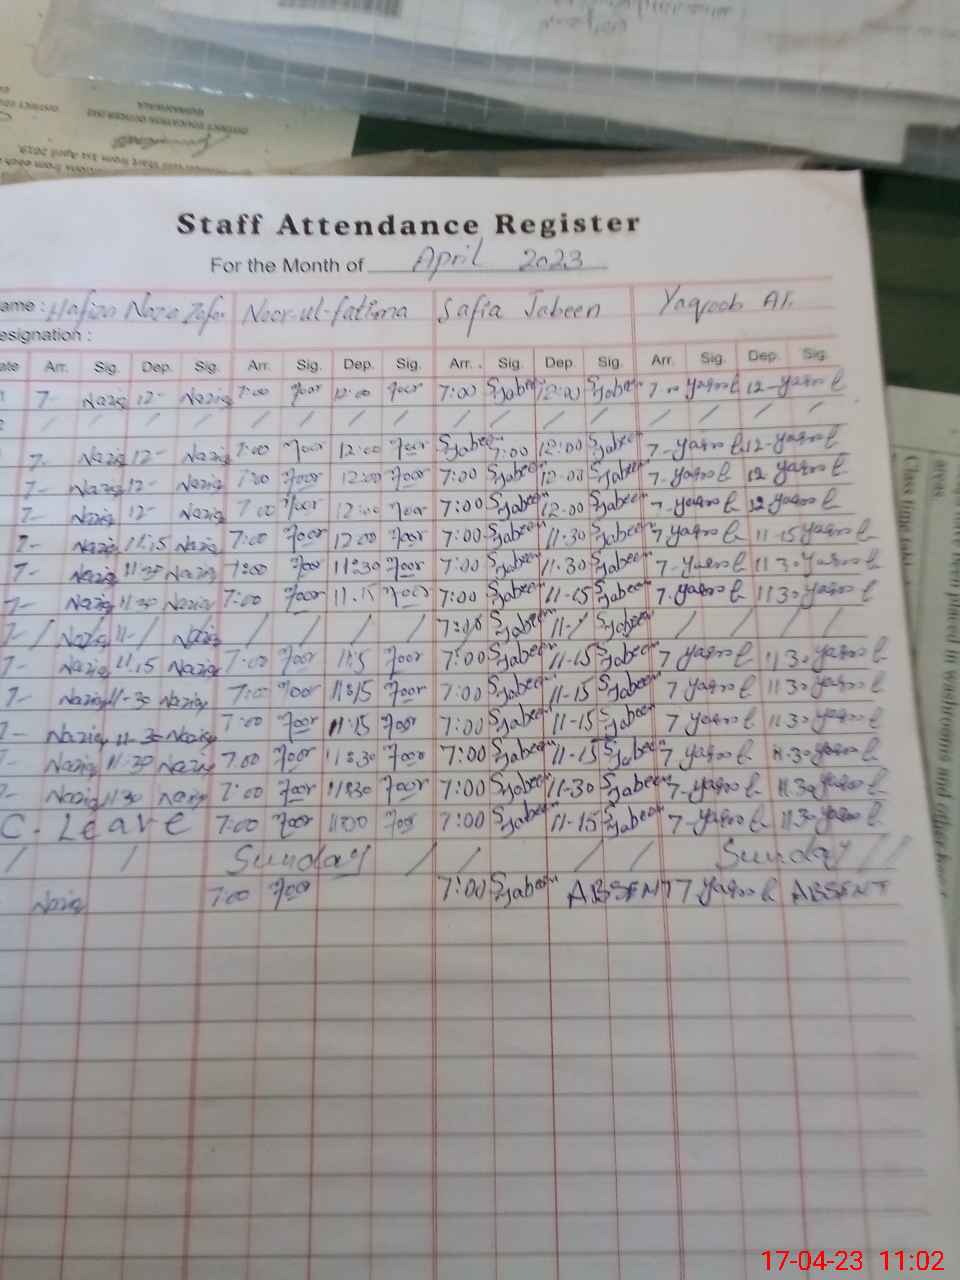 DISTRICT EDUCATION OFFICER
GUJRANWALA
from 1st April 2019.
Staff Attendance Register
For the Month of April 2023
ame : Hafiza Nazia Zafar Noor-ul-fatima Safia Jabeen Yaqoob Ali
esignation :
ate Arr. Sig. Dep. Sig. Arr. Sig. Dep. Sig. Arr. Sig. Dep. Sig. Arr. Sig. Dep. Sig.
7- Naziq 12- Naziq 7:00 Noor 12:00 Noor 7:00 SJabeen 12:00 SJabeen 7- yaqoob 12- yaqoob
/ / / / / / / / / / / / / / / /
7- Naziq 12- Naziq 7:00 Noor 12:00 Noor SJabeen 7:00 12:00 SJabeen 7- yaqoob 12- yaqoob
7- Naziq 12- Naziq 7:00 Noor 12:00 Noor 7:00 SJabeen 12:00 SJabeen 7- yaqoob 12 yaqoob
7- Naziq 12- Naziq 7:00 Noor 12:00 Noor 7:00 SJabeen 12:00 SJabeen 7- yaqoob 12 yaqoob
7- Naziq 11:15 Naziq 7:00 Noor 12:00 Noor 7:00 SJabeen 11-30 SJabeen 7 yaqoob 11-15 yaqoob
7- Naziq 11-30 Naziq 7:00 Noor 11:30 Noor 7:00 SJabeen 11-30 SJabeen 7- yaqoob 11 30 yaqoob
7- Naziq 11-30 Naziq 7:00 Noor 11.15 Noor 7:00 SJabeen 11-15 SJabeen 7- yaqoob 11 30 yaqoob
7- / Naziq 11- / Naziq / / / / 7:00 SJabeen 11-/ SJabeen / / / /
7- Naziq 11.15 Naziq 7:00 Noor 11:15 Noor 7:00 SJabeen 11-15 SJabeen 7 yaqoob 11 30 yaqoob
7- Naziq 11-30 Naziq 7:00 Noor 11:15 Noor 7:00 SJabeen 11-15 SJabeen 7 yaqoob 11 30 yaqoob
7- Naziq 11-30 Naziq 7:00 Noor 11:15 Noor 7:00 SJabeen 11-15 SJabeen 7 yaqoob 11 30 yaqoob
Naziq 11-30 Naziq 7:00 Noor 11:30 Noor 7:00 SJabeen 11-15 SJabeen 7 yaqoob 11-30 yaqoob
Naziq 11 30 Naziq 7:00 Noor 11:30 Noor 7:00 SJabeen 11-30 SJabeen 7- yaqoob 11 30 yaqoob
C. Leave 7:00 Noor 11:00 Noor 7:00 SJabeen 11-15 SJabeen 7- yaqoob 11 30 yaqoob
/ / Sunday / / / / Sunday / /
Naziq 7:00 Noor 7:00 SJabeen ABSENT 7 yaqoob ABSENT
17-04-23 11:02